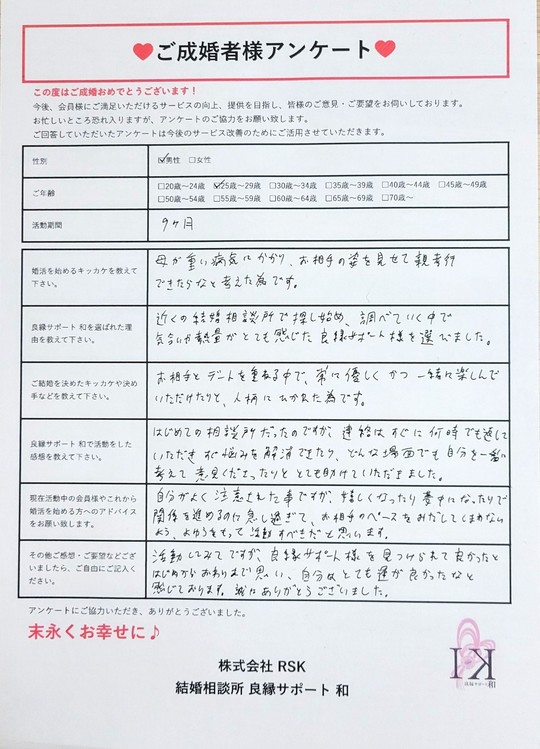 ♥ご成婚者様アンケート♥
この度はご成婚おめでとうございます！
今後、会員様にご満足いただけるサービスの向上、提供を目指し、皆様のご意見・ご要望をお伺いしております。
お忙しいところ恐れ入りますが、アンケートのご協力をお願い致します。
ご回答していただいたアンケートは今後のサービス改善のためにご活用させていただきます。
性別
☑男性 □女性
ご年齢
□20歳～24歳 ☑25歳～29歳 □30歳～34歳 □35歳～39歳 □40歳～44歳 □45歳～49歳
□50歳～54歳 □55歳～59歳 □60歳～64歳 □65歳～69歳 □70歳～
活動期間
9ヶ月
婚活を始めるキッカケを教えて
下さい。
母が重い病気にかかり、お相手の姿を見せて親孝行
できたらなと考えた為です。
良縁サポート 和を選ばれた理
由を教えて下さい。
近くの結婚相談所で探し始め、調べていく中で
気合いや熱量がとても感じた良縁サポート様を選びました。
ご結婚を決めたキッカケや決め
手などを教えて下さい。
お相手とデートを重ねる中で、常に優しくかつ一緒に楽しんで
いただけたりと、人柄にひかれた為です。
良縁サポート 和で活動をした
感想を教えて下さい。
はじめての相談所だったのですが、連絡はすぐに何時でも返して
いただきすぐ悩みを解消できたり、どんな場面でも自分を一番に
考えて意見くださったりととても助けていただきました。
現在活動中の会員様やこれから
婚活を始める方へのアドバイス
をお願い致します。
自分がよく注意された事ですが、嬉しくなったり夢中になったりで
関係を進めるのに急し過ぎて、お相手のペースをみだしてしまわない
よう、よゆうをもって活動すべきだと思います。
その他ご感想・ご要望などござ
いましたら、ご自由にご記入く
ださい。
活動しみてですが、良縁サポート様を見つけられて良かったと
はじめからおわりまで思い、自分はとても運が良かったなと
感じております。誠にありがとうございました。
アンケートにご協力いただき、ありがとうございました。
末永くお幸せに♪
株式会社 RSK
結婚相談所 良縁サポート 和
良縁サポート和